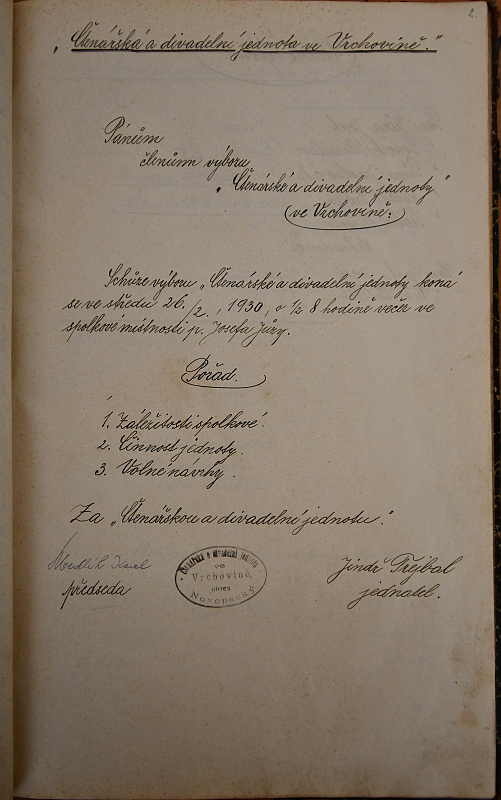 2.
„Čtenářská a divadelní jednota ve Vrchovině."
Pánům
členům výboru
„Čtenářské a divadelní jednoty"
ve Vrchovině:
Schůze výboru „Čtenářské a divadelní jednoty koná
se ve středu 26./2., 1930, o ½ 8 hodině večer ve
spolkové místnosti p. Josefa Jůzy.
Pořad.
1. Záležitosti spolkové.
2. Činnost jednoty.
3. Volné návrhy.
Za „Čtenářskou a divadelní jednotu."
Jindř Trejbal
předseda
jednatel.
Čtenářská a divadelní jednota
ve
Vrchovině,
okres
Novopacký